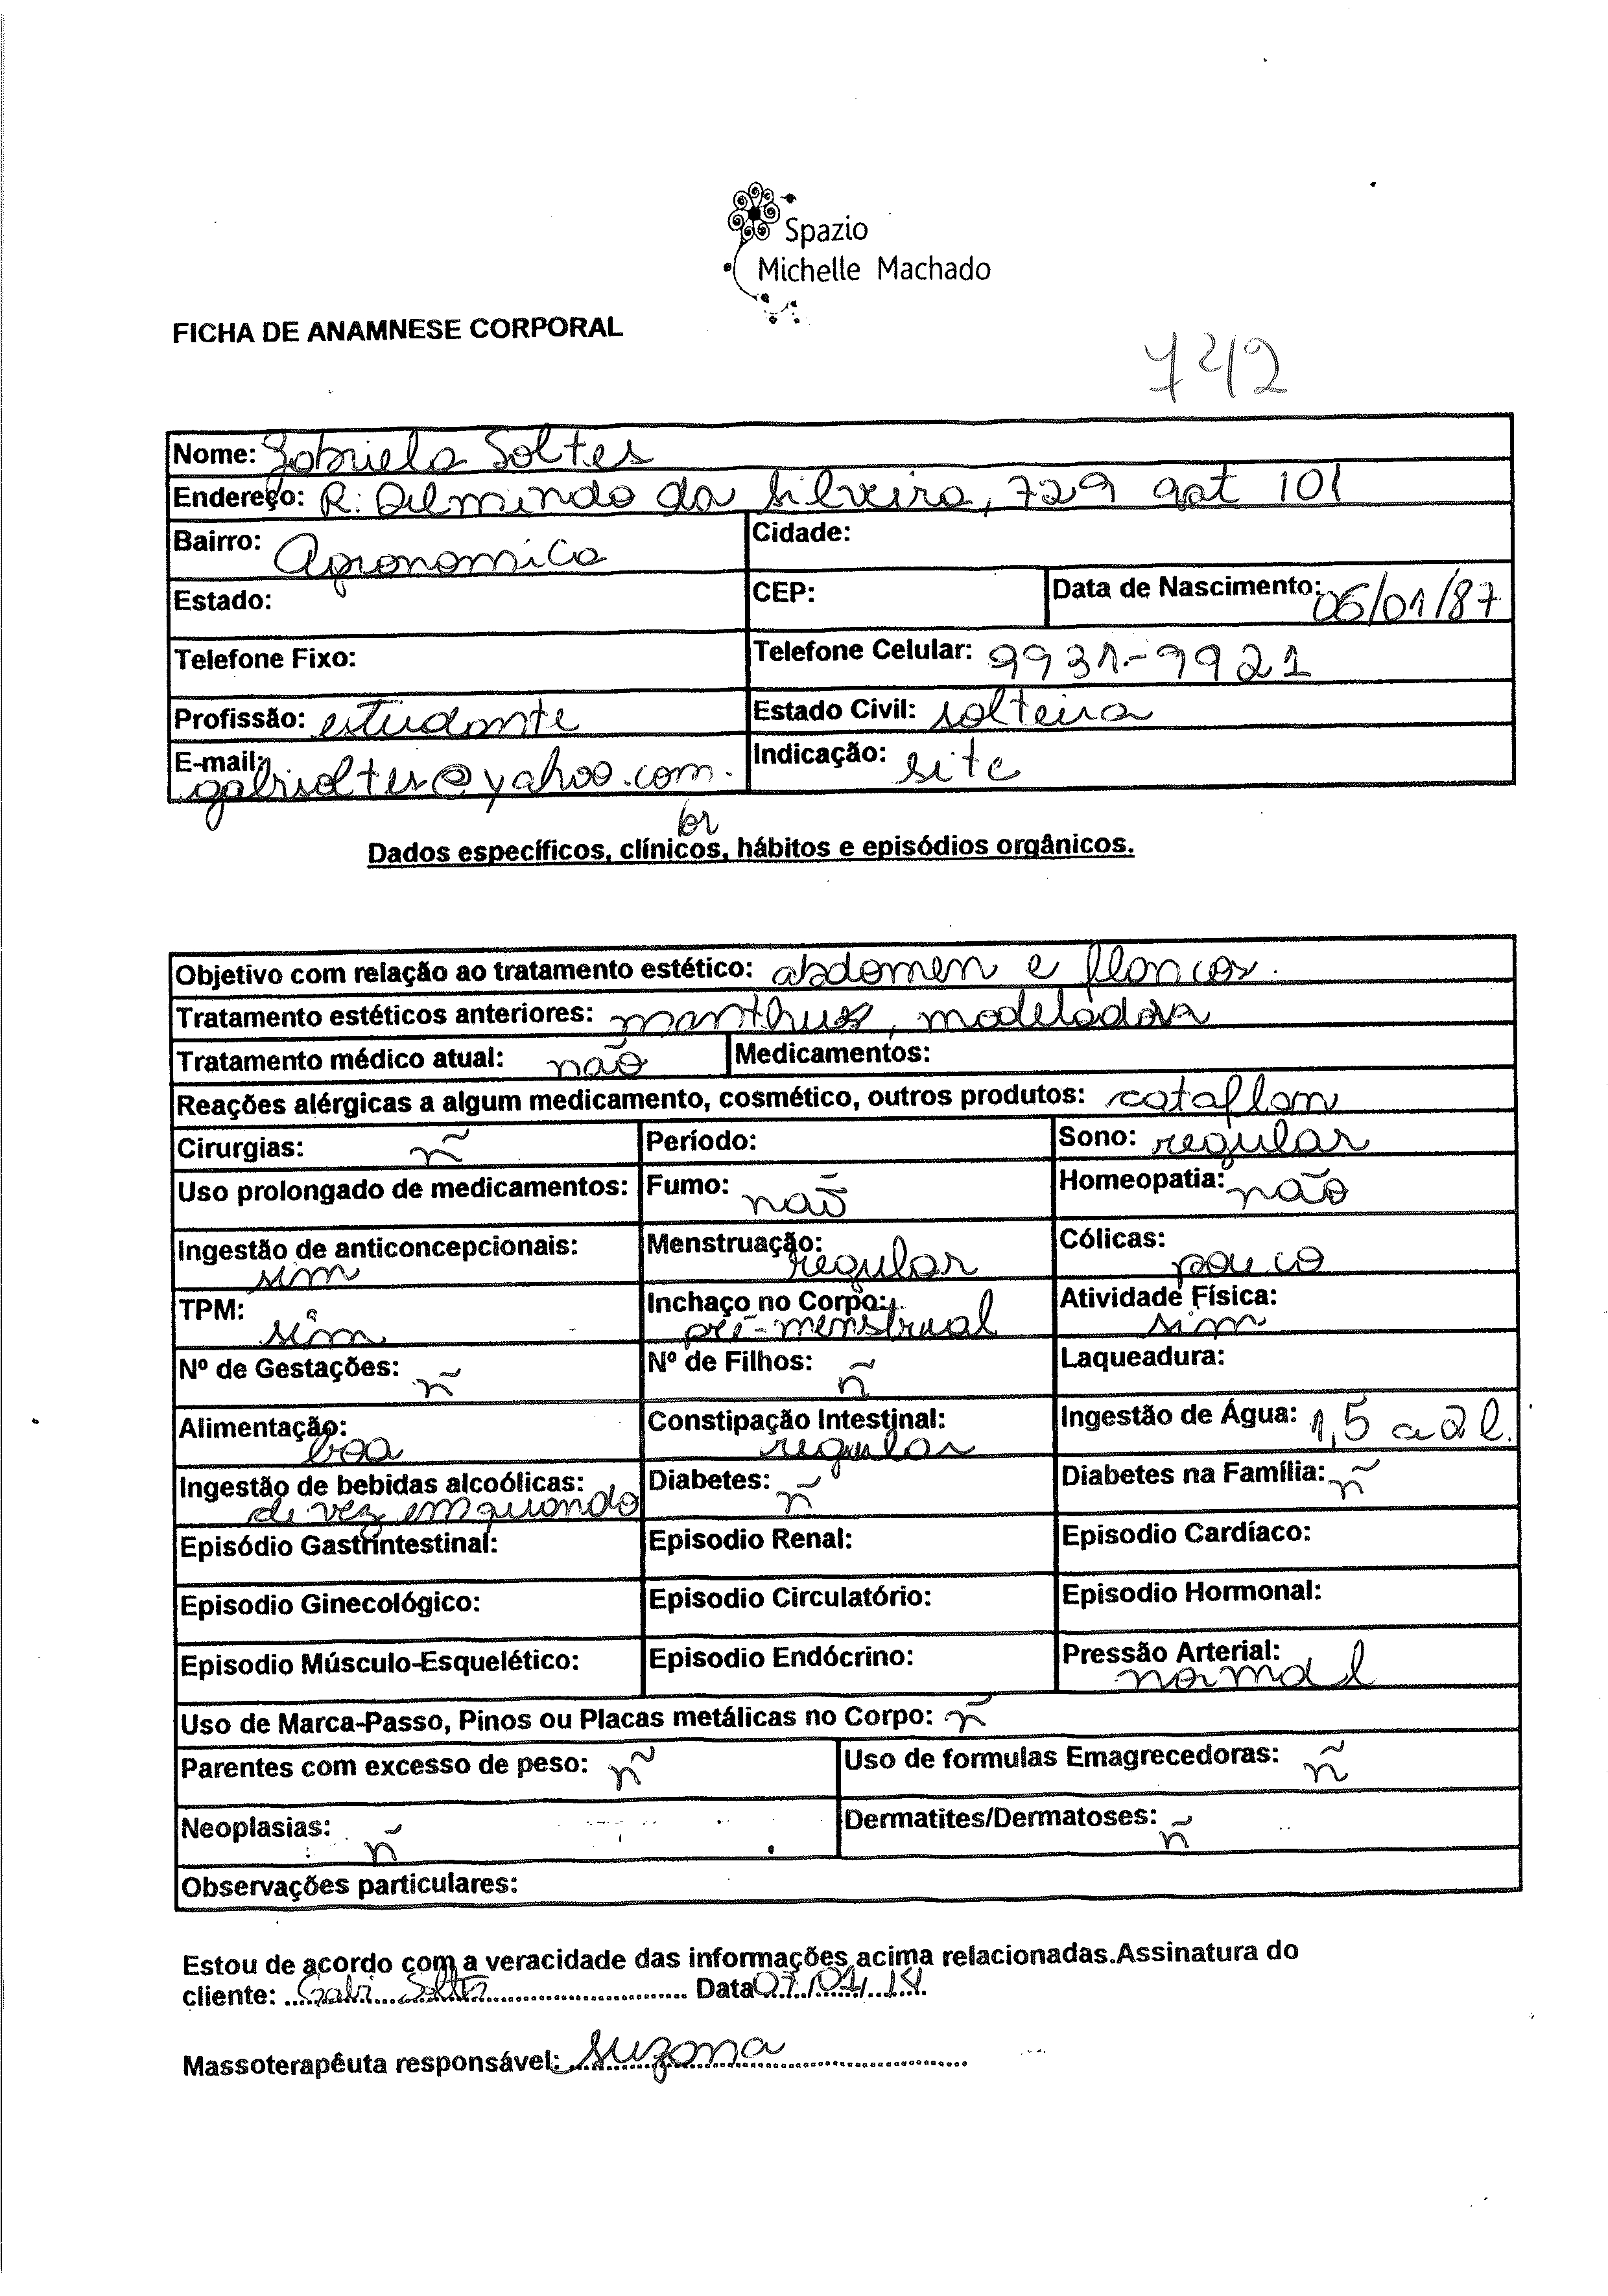 Spazio
Michelle Machado
FICHA DE ANAMNESE CORPORAL
742
Nome: Gabriela Soltes
Endereço: R: Delmindo da Silveira, 729 apt 101
Bairro: Agronomica Cidade:
Estado: CEP: Data de Nascimento: 06/01/87
Telefone Fixo: Telefone Celular: 9931-9921
Profissão: estudante Estado Civil: solteira
E-mail: gabisoltes@yahoo.com. Indicação: site
br
Dados específicos, clínicos, hábitos e episódios orgânicos.
Objetivo com relação ao tratamento estético: abdomen e flancos.
Tratamento estéticos anteriores: manthus, modeladora
Tratamento médico atual: não Medicamentos:
Reações alérgicas a algum medicamento, cosmético, outros produtos: cataflam
Cirurgias: ñ Período: Sono: regular
Uso prolongado de medicamentos: Fumo: não Homeopatia: não
Ingestão de anticoncepcionais: sim Menstruação: regular Cólicas: pouco
TPM: sim Inchaço no Corpo: pré-menstrual Atividade Física: sim
Nº de Gestações: ñ Nº de Filhos: ñ Laqueadura:
Alimentação: boa Constipação Intestinal: regular Ingestão de Água: 1,5 a 2 l.
Ingestão de bebidas alcoólicas: de vez em quando Diabetes: ñ Diabetes na Família: ñ
Episódio Gastrintestinal: Episodio Renal: Episodio Cardíaco:
Episodio Ginecológico: Episodio Circulatório: Episodio Hormonal:
Episodio Músculo-Esquelético: Episodio Endócrino: Pressão Arterial: normal
Uso de Marca-Passo, Pinos ou Placas metálicas no Corpo: ñ
Parentes com excesso de peso: ñ Uso de formulas Emagrecedoras: ñ
Neoplasias: ñ Dermatites/Dermatoses: ñ
Observações particulares:
Estou de acordo com a veracidade das informações acima relacionadas.Assinatura do
cliente: Gabi Soltes Data 07/01/14.
Massoterapêuta responsável: Suzana